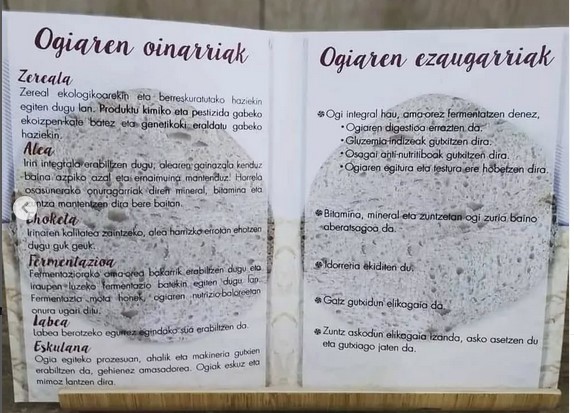 Ogiaren oinarriak
Zereala
Zereal ekologikoarekin eta berreskuratutako haziekin
egiten dugu lan. Produktu kimiko eta pestizida gabeko
ekoizpen-kate batez eta genetikoki eraldatu gabeko
haziekin.
Alea
Irin integrala erabiltzen dugu, alearen gainazala kenduz
baina azpiko azal eta ernamuina mantenduz. Horrela
osasunerako onuragarriak diren mineral, bitamina eta
zuntza mantentzen dira bere baitan.
Ehoketa
Irinaren kalitatea zaintzeko, alea harrizko errotan ehotzen
dugu guk geuk.
Fermentazioa
Fermentaziorako ama-orea bakarrik erabiltzen dugu eta
iraupen luzeko fermentazio batekin egiten dugu lan.
Fermentazio mota honek, ogiaren nutrizio-balorean
onura ugari ditu.
Labea
Labea berotzeko egurrez egindako sua erabiltzen da.
Eskulana
Ogia egiteko prozesuan, ahalik eta makineria gutxien
erabiltzen da, gehienez amasadorea. Ogiak eskuz eta
mimoz lantzen dira.
Ogiaren ezaugarriak
Ogi integral hau, ama-orez fermentatzen denez,
• Ogiaren digestioa errazten da.
• Gluzemia-indizeak gutxitzen dira.
• Osagai anti-nutritiboak gutxitzen dira.
• Ogiaren egitura eta testura ere hobetzen dira.
Bitamina, mineral eta zuntzetan ogi zuria baino
aberatsagoa da.
Idorreria ekiditen du.
Gatz gutxidun elikagaia da.
Zuntz askodun elikagaia izanda, asko asetzen du
eta gutxiago jaten da.